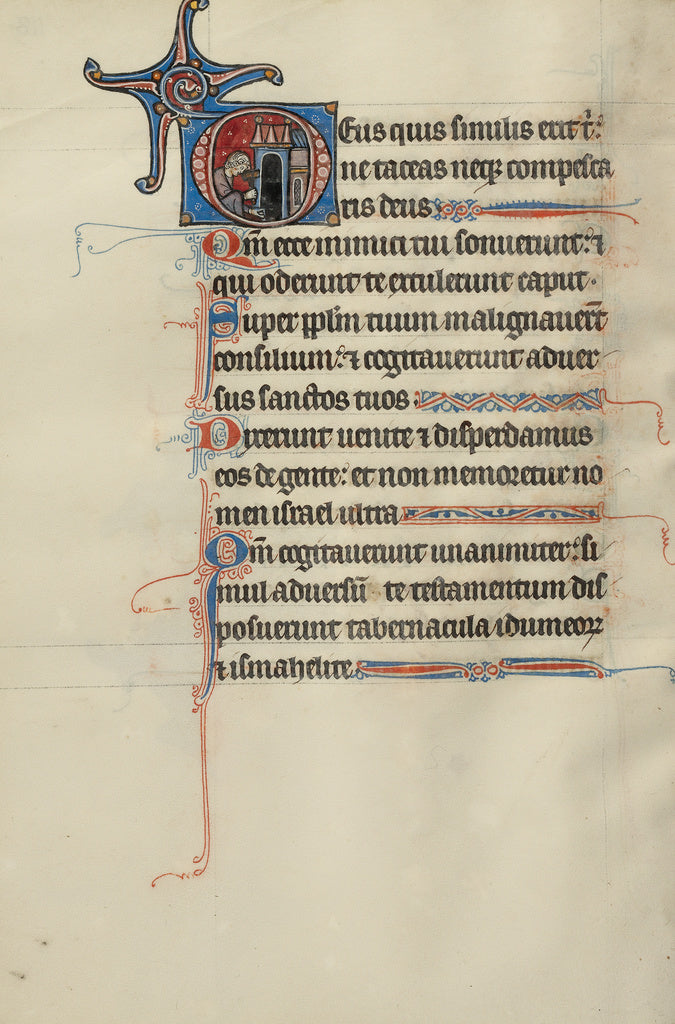 Deus quis similis erit t̉:
ne taceas neqꝫ compesca
ris deus
Qm̄ ecce inimici tui sonuerunt: ⁊
qui oderunt te extulerunt caput.
Super pplm̄ tuum malignauer̄t
consilium: ⁊ cogitauerunt aduer
sus sanctos tuos:
Dixerunt uenite ⁊ disperdamus
eos de gente: et non memoretur no
men israel ultra
Qm̄ cogitauerunt unanimiter: si
mul aduersū te testamentum dis
posuerunt tabernacula idumeoꝝ
⁊ ismahelite